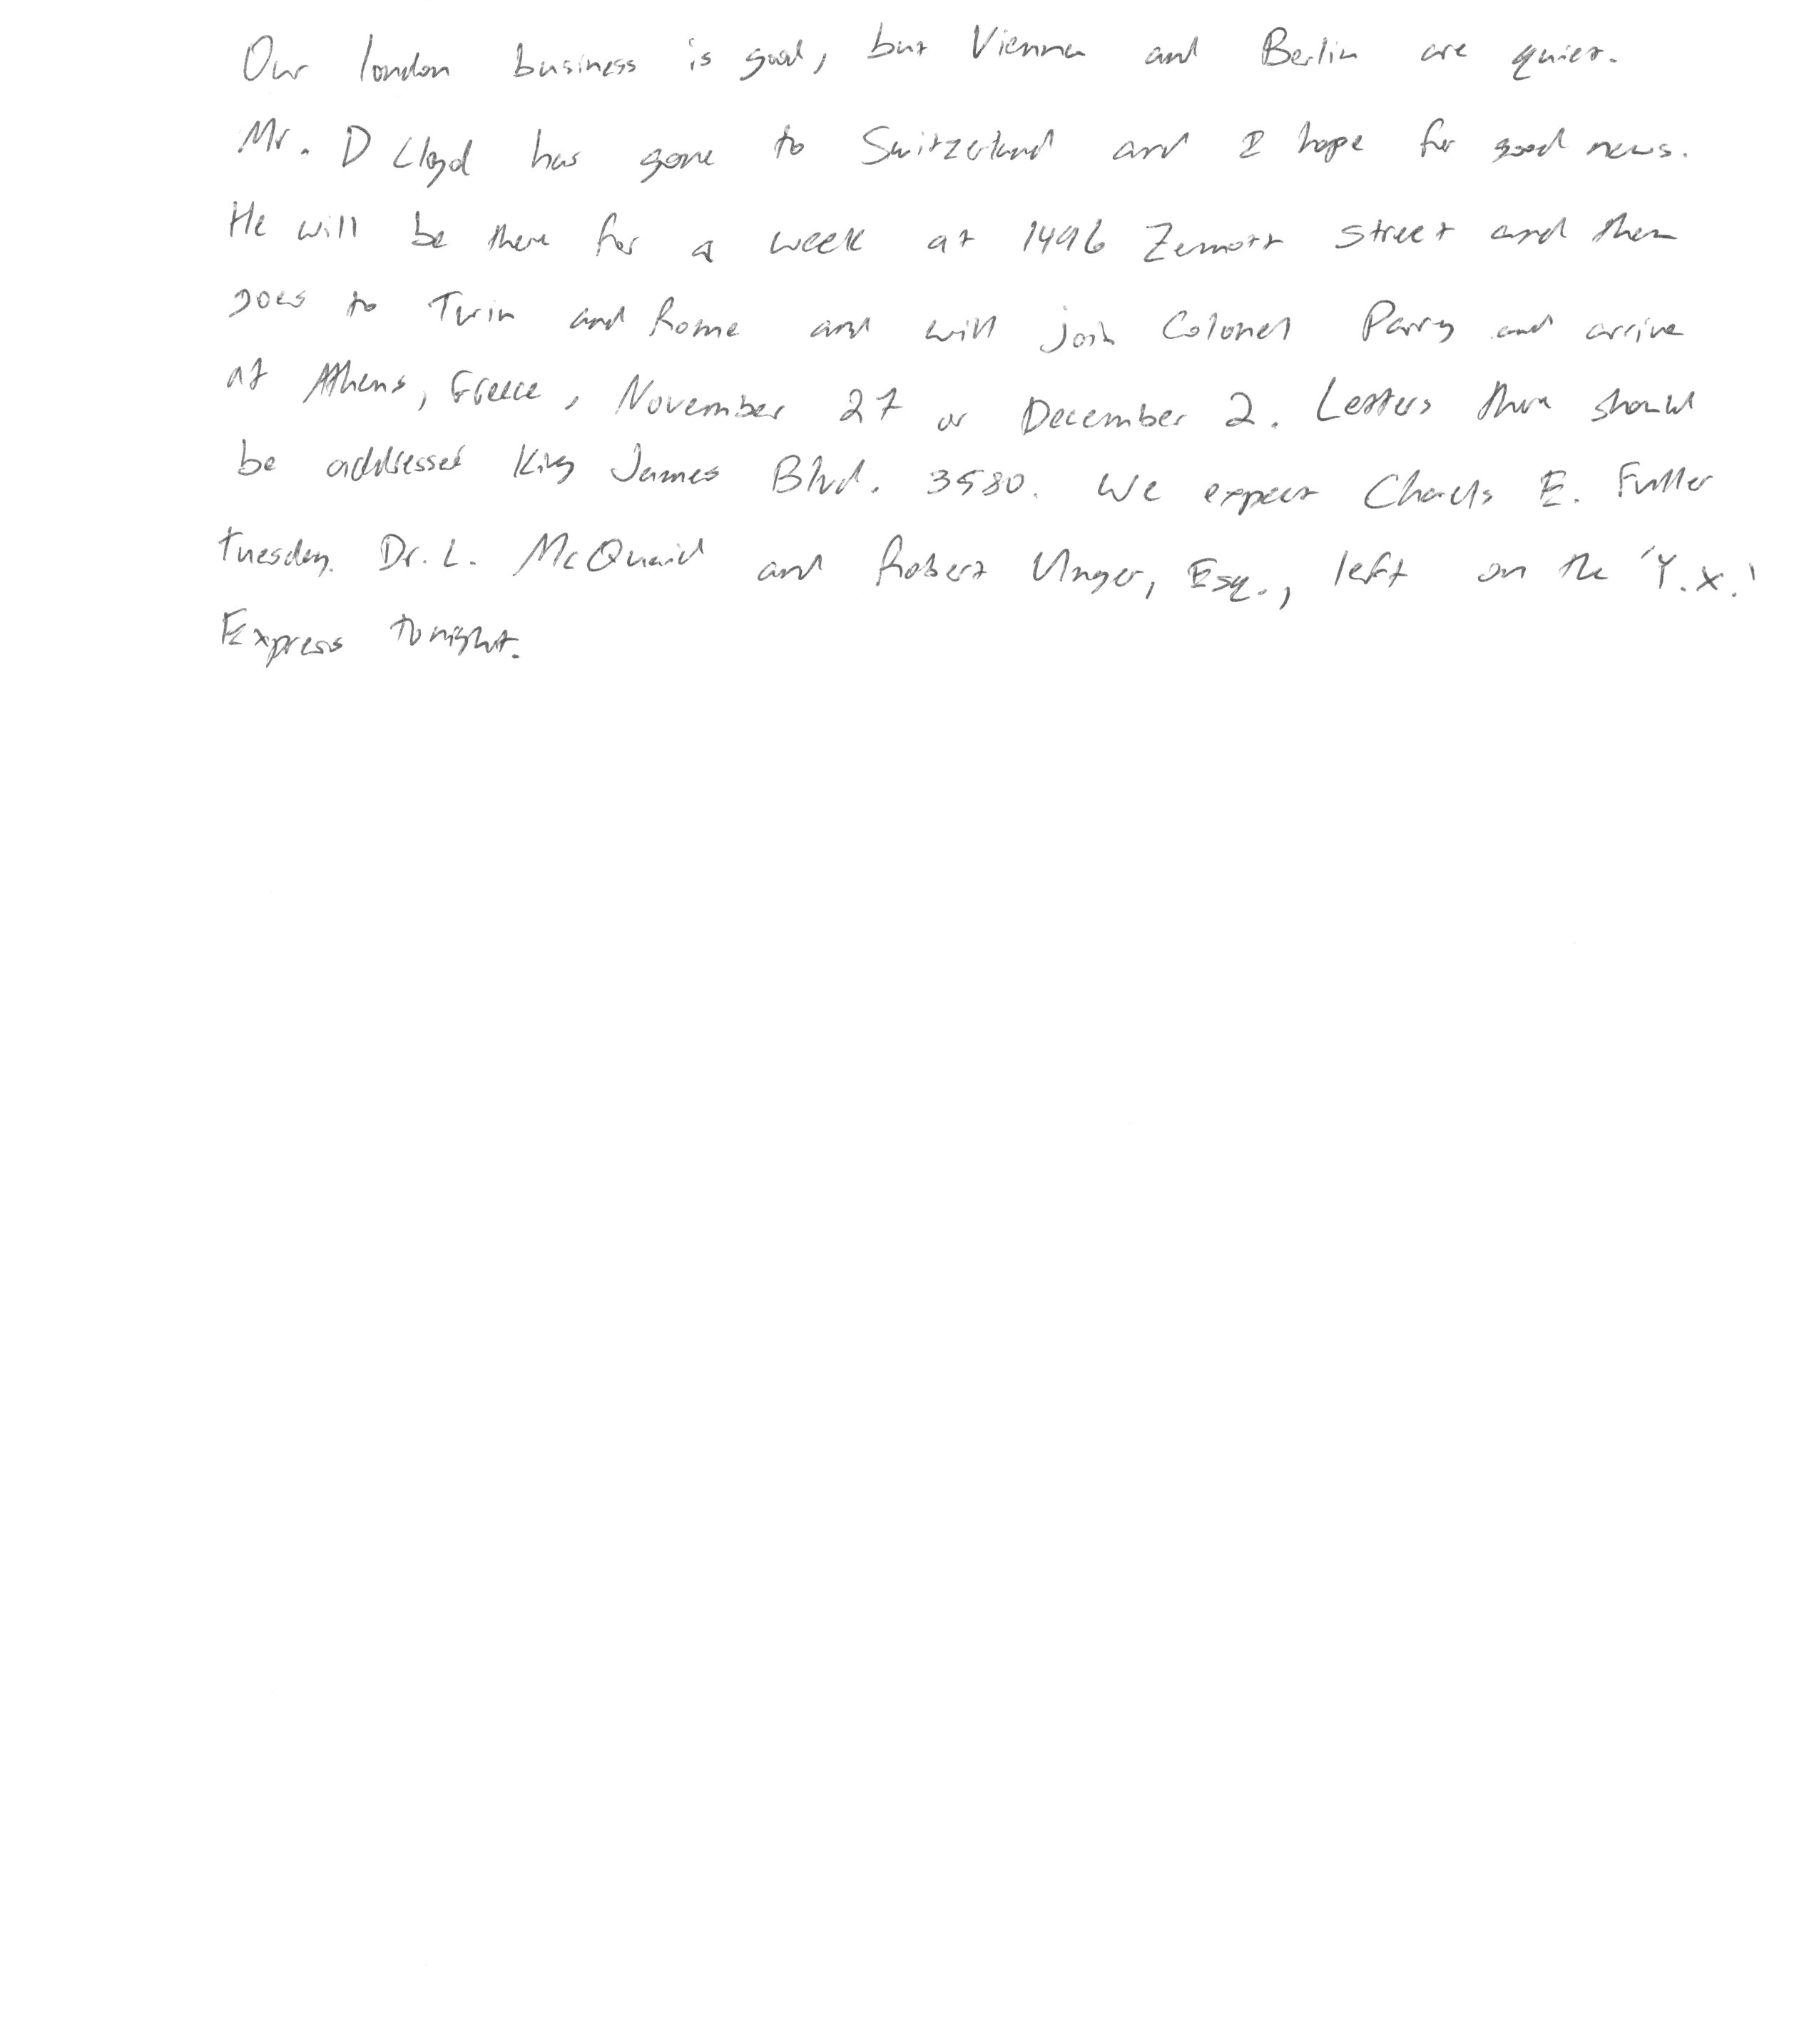 Our london business is good, but Vienna and Berlin are quiet.
Mr. D Lloyd has gone to Switzerland and I hope for good news.
He will be there for a week at 1496 Zemott street and then
goes to Turin and Rome and will join Colonel Parry and arrive
at Athens, Greece, November 27 or December 2. Letters there should
be addressed King James Blvd. 3580. We expect Charls E. Fuller
tuesday. Dr. L. McQuaid and Robert Unger, Esq., left on the 'Y.X.'
Express tonight.